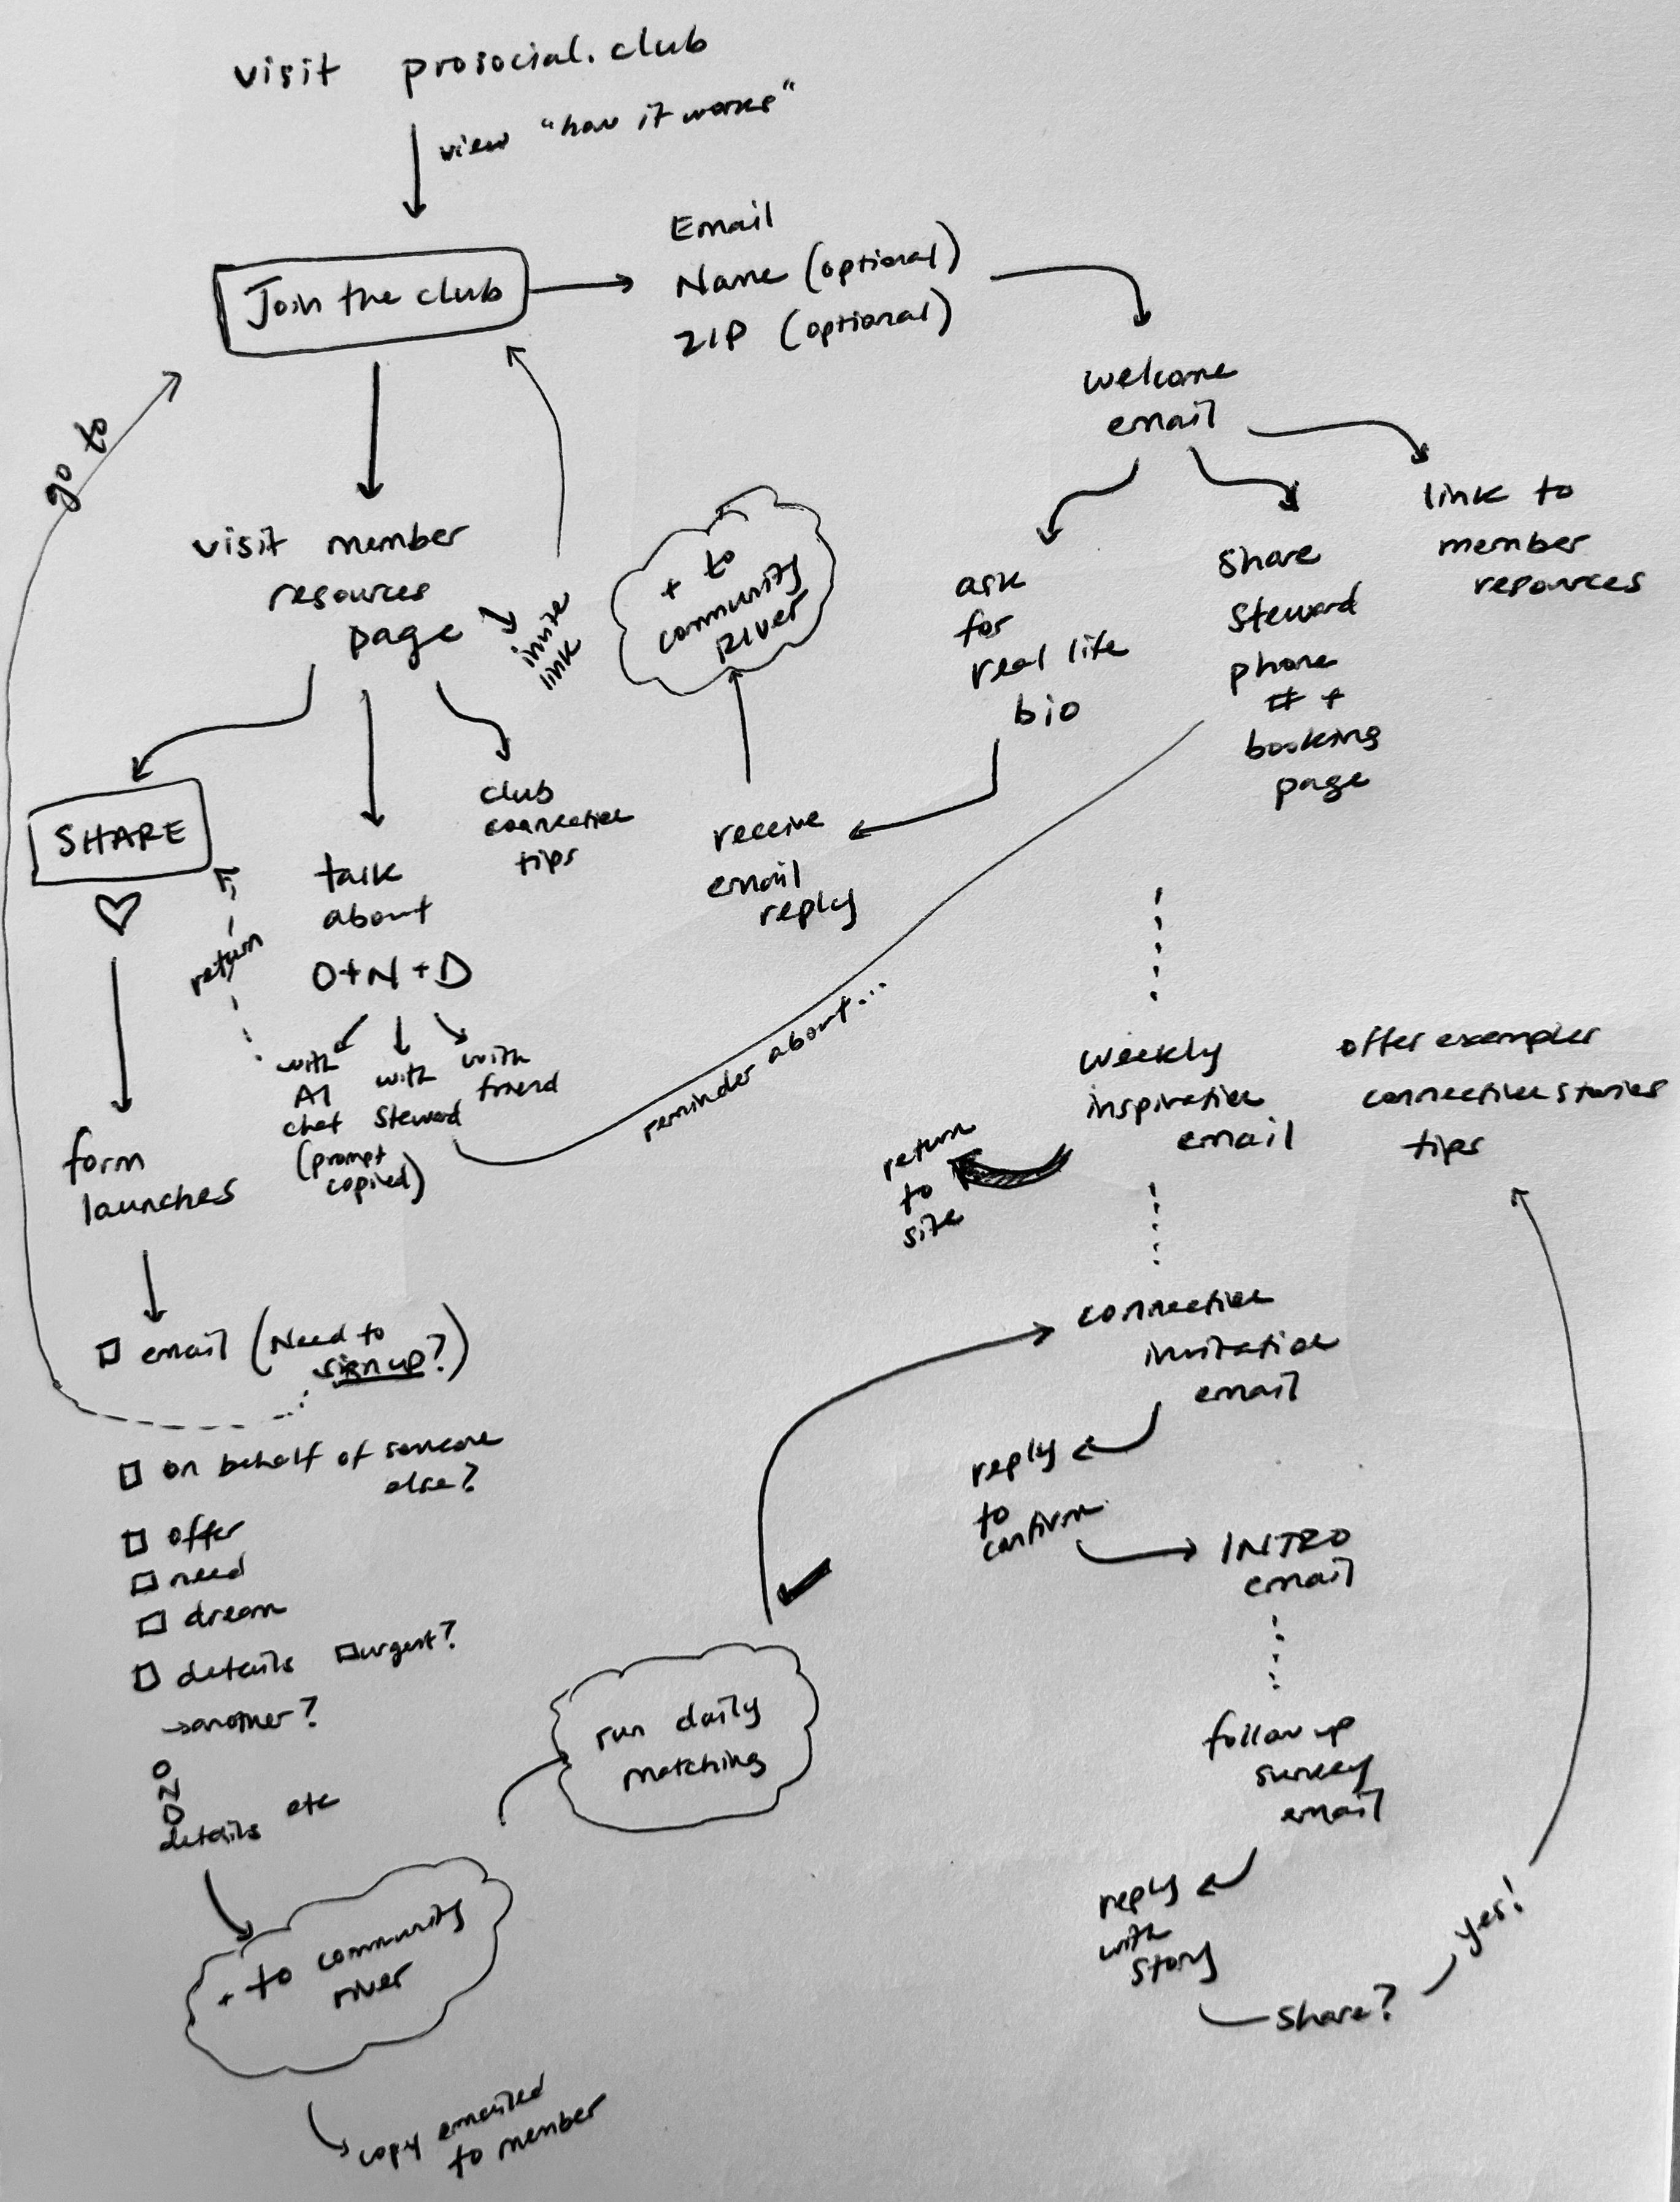 visit prosocial.club
view "how it works"
Join the club
Email
Name (optional)
ZIP (optional)
welcome
email
ask
for
real life
bio
share
steward
phone
# +
booking
page
link to
member
resources
go to
visit member
resources
page
invite
link
+ to
community
RIVER
receive
email
reply
SHARE
return
talk
about
O+N+D
with
AI
chat
(prompt
copied)
with
steward
with
friend
club
connection
tips
reminder about...
form
launches
email (Need to
sign up?)
on behalf of someone
else?
offer
need
dream
details urgent?
→another?
O
N
D
details etc
+ to community
river
copy emailed
to member
run daily
matching
weekly
inspiration
email
offer examples
connection stories
tips
return
to
site
connection
invitation
email
reply
to
confirm
INTRO
email
follow up
survey
email
reply
with
story
share?
yes!